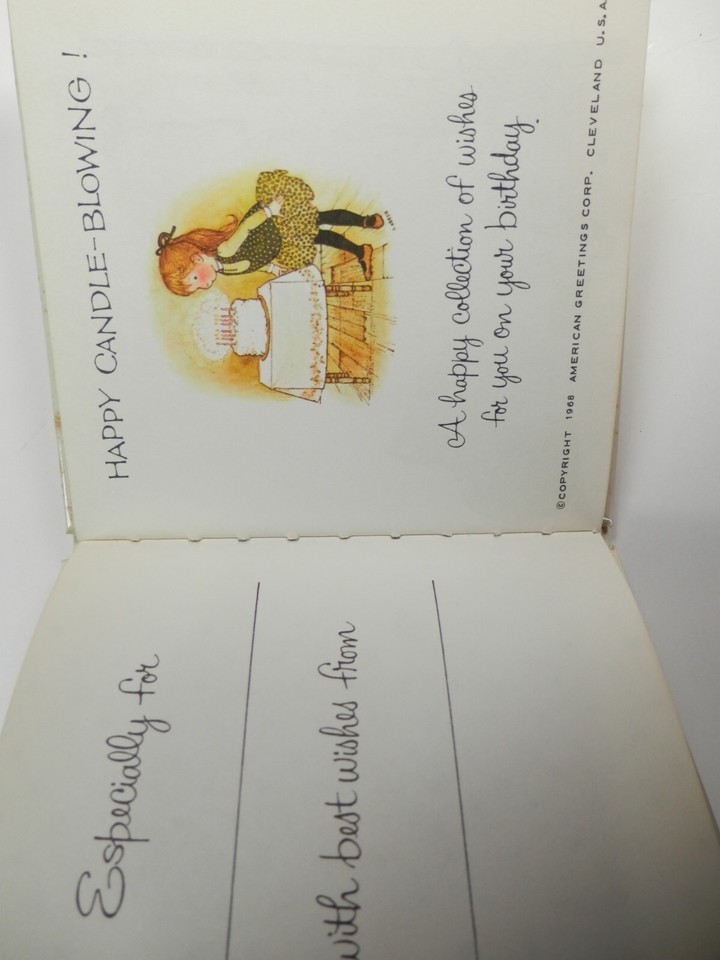 HAPPY CANDLE-BLOWING!
A happy collection of wishes
for you on your birthday.
©COPYRIGHT 1968 AMERICAN GREETINGS CORP. CLEVELAND U.S.A
Especially for
with best wishes from